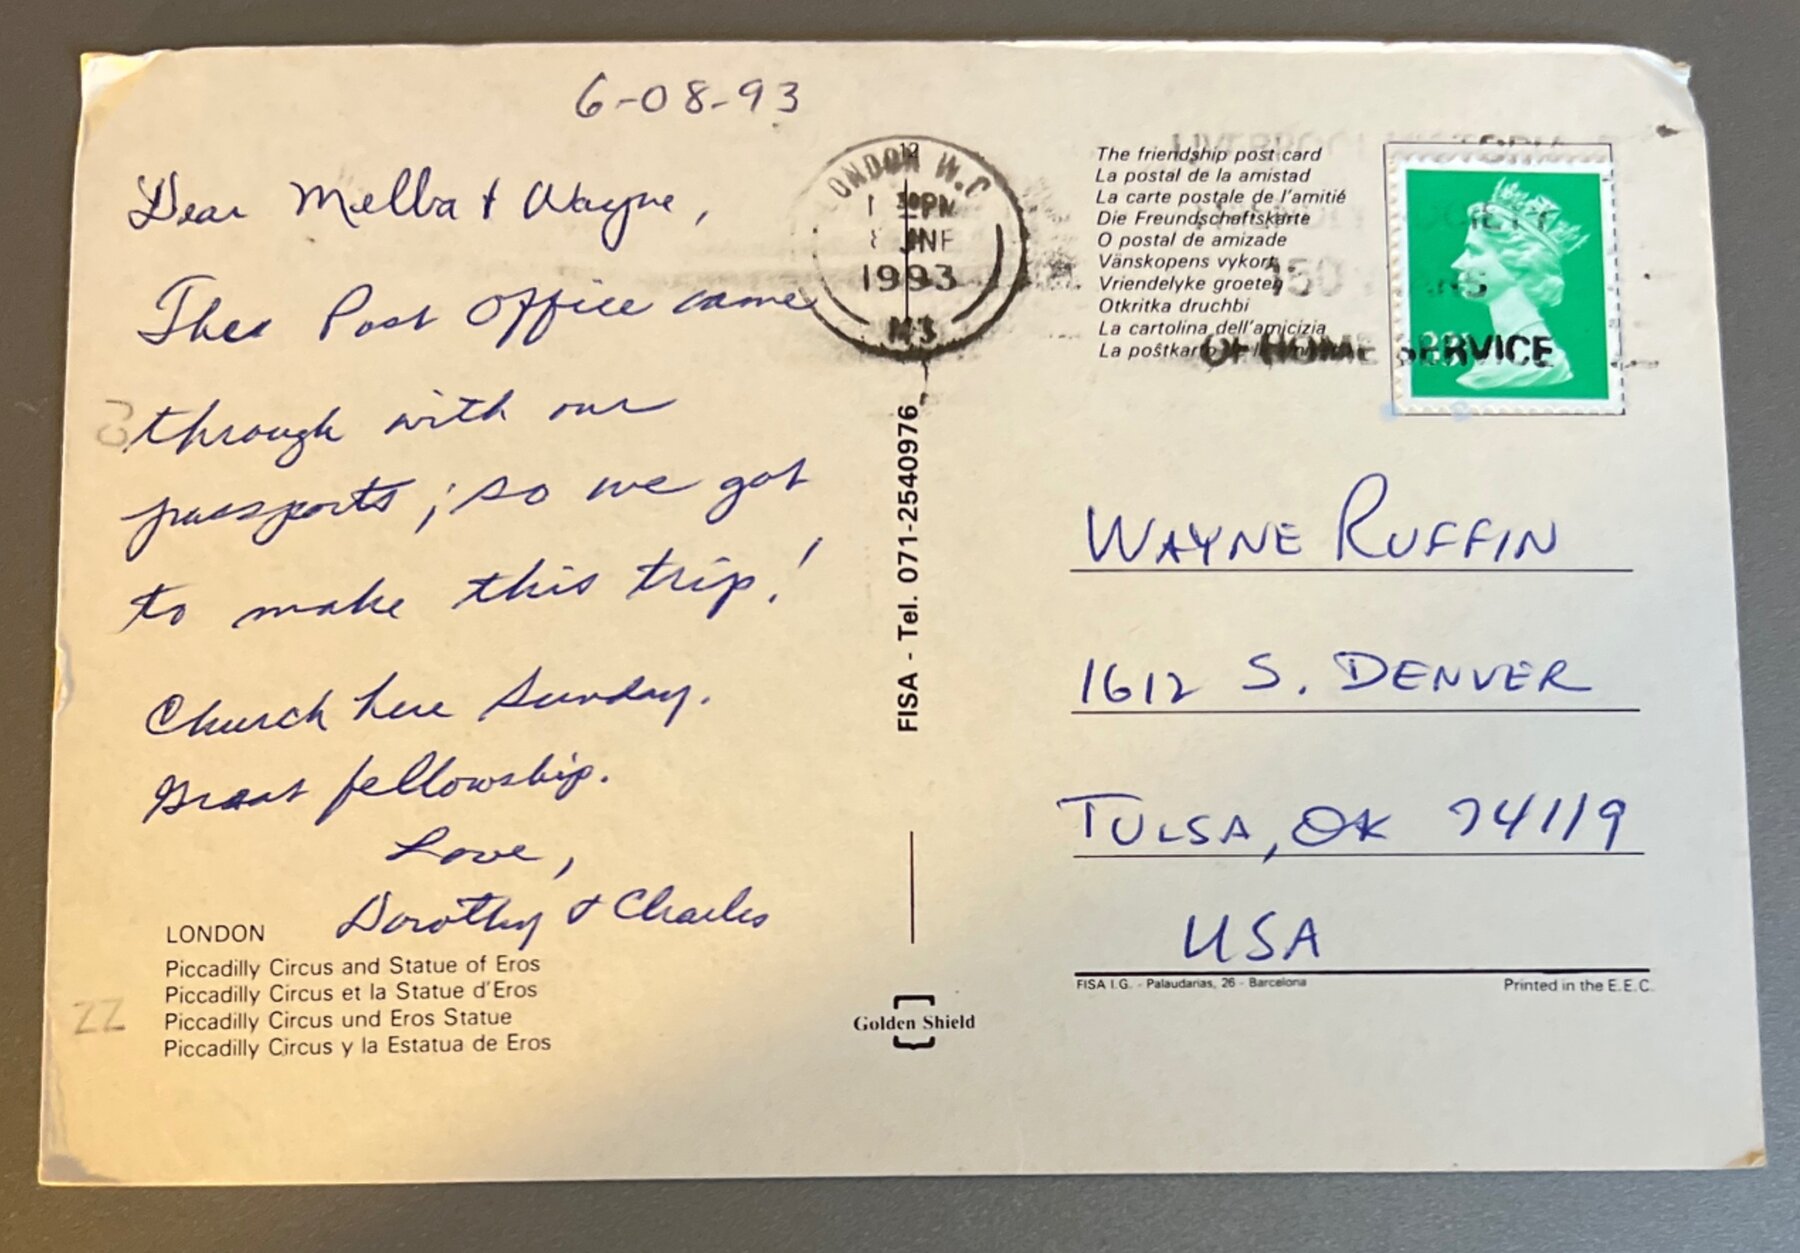 6-08-93
Dear Melba & Wayne,
The Post Office came
through with our
passports; so we got
to make this trip!
Church here Sunday.
Great fellowship.
Love,
Dorothy & Charles
LONDON
Piccadilly Circus and Statue of Eros
Piccadilly Circus et la Statue d'Eros
Piccadilly Circus und Eros Statue
Piccadilly Circus y la Estatua de Eros
ZZ
LONDON W.C
12
30PM
JNE
1993
FISA - Tel. 071-2540976
Golden Shield
The friendship post card
La postal de la amistad
La carte postale de l'amitié
Die Freundschaftskarte
O postal de amizade
Vänskopens vykort
Vriendelyke groeten
Otkritka druchbi
La cartolina dell'amicizia
La poŝtkarto
150
OF HOME SERVICE
WAYNE RUFFIN
1612 S. DENVER
TULSA, OK 74119
USA
FISA I.G. - Palaudarias, 26 - Barcelona
Printed in the E.E.C.